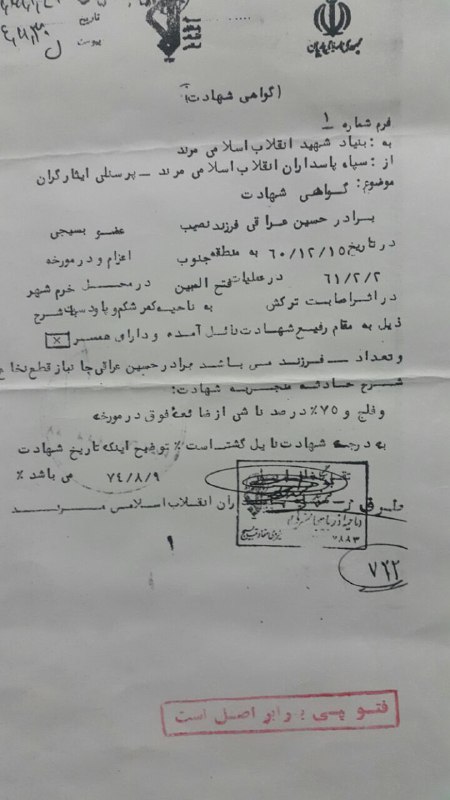 تاریخ
پیوست
جمهوری اسلامی ایران
(گواهی شهادت)
فرم شماره ۱
به : بنیاد شهید انقلاب اسلامی مرند
از : سپاه پاسداران انقلاب اسلامی مرند ــ پرسنلی ایثارگران
موضوع: گواهی شهادت
برادر حسین عراقی فرزند نصیب عضو بسیجی
در تاریخ ۶۰/۱۲/۱۵ به منطقه جنوب اعزام و در مورخه
۶۱/۲/۲ در عملیات فتح المبین در محل خرم شهر
در اثر اصابت ترکش به ناحیه کمر شکم و با دست شرح
ذیل به مقام رفیع شهادت نائل آمده و دارای همسر x
و تعداد ــ فرزند می باشد برادر حسین عراقی جانباز قطع نخاع
شرح حادثه منجر به شهادت:
و فلج و ۷۵٪ درصد ناشی از ضایعه فوق در مورخه
به درجه شهادت نایل گشته است٪ توضیح اینکه تاریخ شهادت
۷۴/۸/۹ می باشد ٪
ران انقلاب اسلامی مرند
۷۸۸۳
۷۶۲
فتوپی برابر اصل است